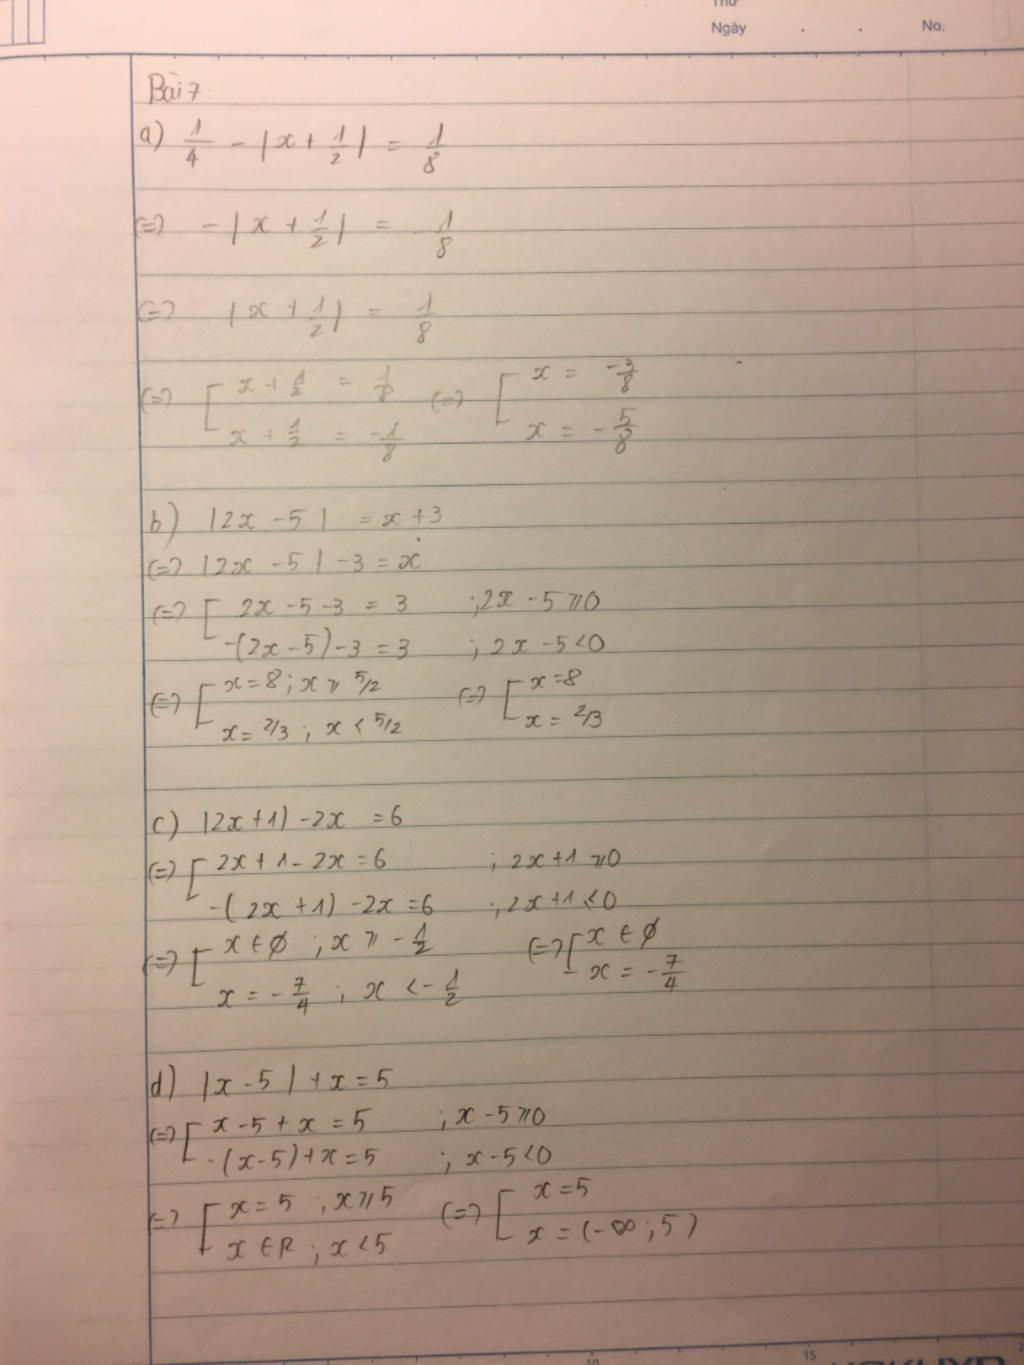 Thứ
Ngày . . No.
Bài 7:
a) 1/4 - |x + 1/2| = 1/8
(=) - |x + 1/2| = - 1/8
(=) |x + 1/2| = 1/8
(=) [ x + 1/2 = 1/8 (=) [ x = -3/8
x + 1/2 = -1/8 x = - 5/8
b) |2x - 5| = x + 3
(=) |2x - 5| - 3 = x
(=) [ 2x - 5 - 3 = 3 ; 2x - 5 ≥ 0
-(2x - 5) - 3 = 3 ; 2x - 5 < 0
(=) [ x = 8 ; x ≥ 5/2 (=) [ x = 8
x = 2/3 ; x < 5/2 x = 2/3
c) |2x + 1) - 2x = 6
(=) [ 2x + 1 - 2x = 6 ; 2x + 1 ≥ 0
-(2x + 1) - 2x = 6 ; 2x + 1 < 0
(=) [ x ∈ ∅ ; x ≥ - 1/2 (=) [ x ∈ ∅
x = - 7/4 ; x < - 1/2 x = - 7/4
d) |x - 5| + x = 5
(=) [ x - 5 + x = 5 ; x - 5 ≥ 0
-(x - 5) + x = 5 ; x - 5 < 0
(=) [ x = 5 ; x ≥ 5 (=) [ x = 5
x ∈ R ; x < 5 x = (-∞ ; 5)
10 15